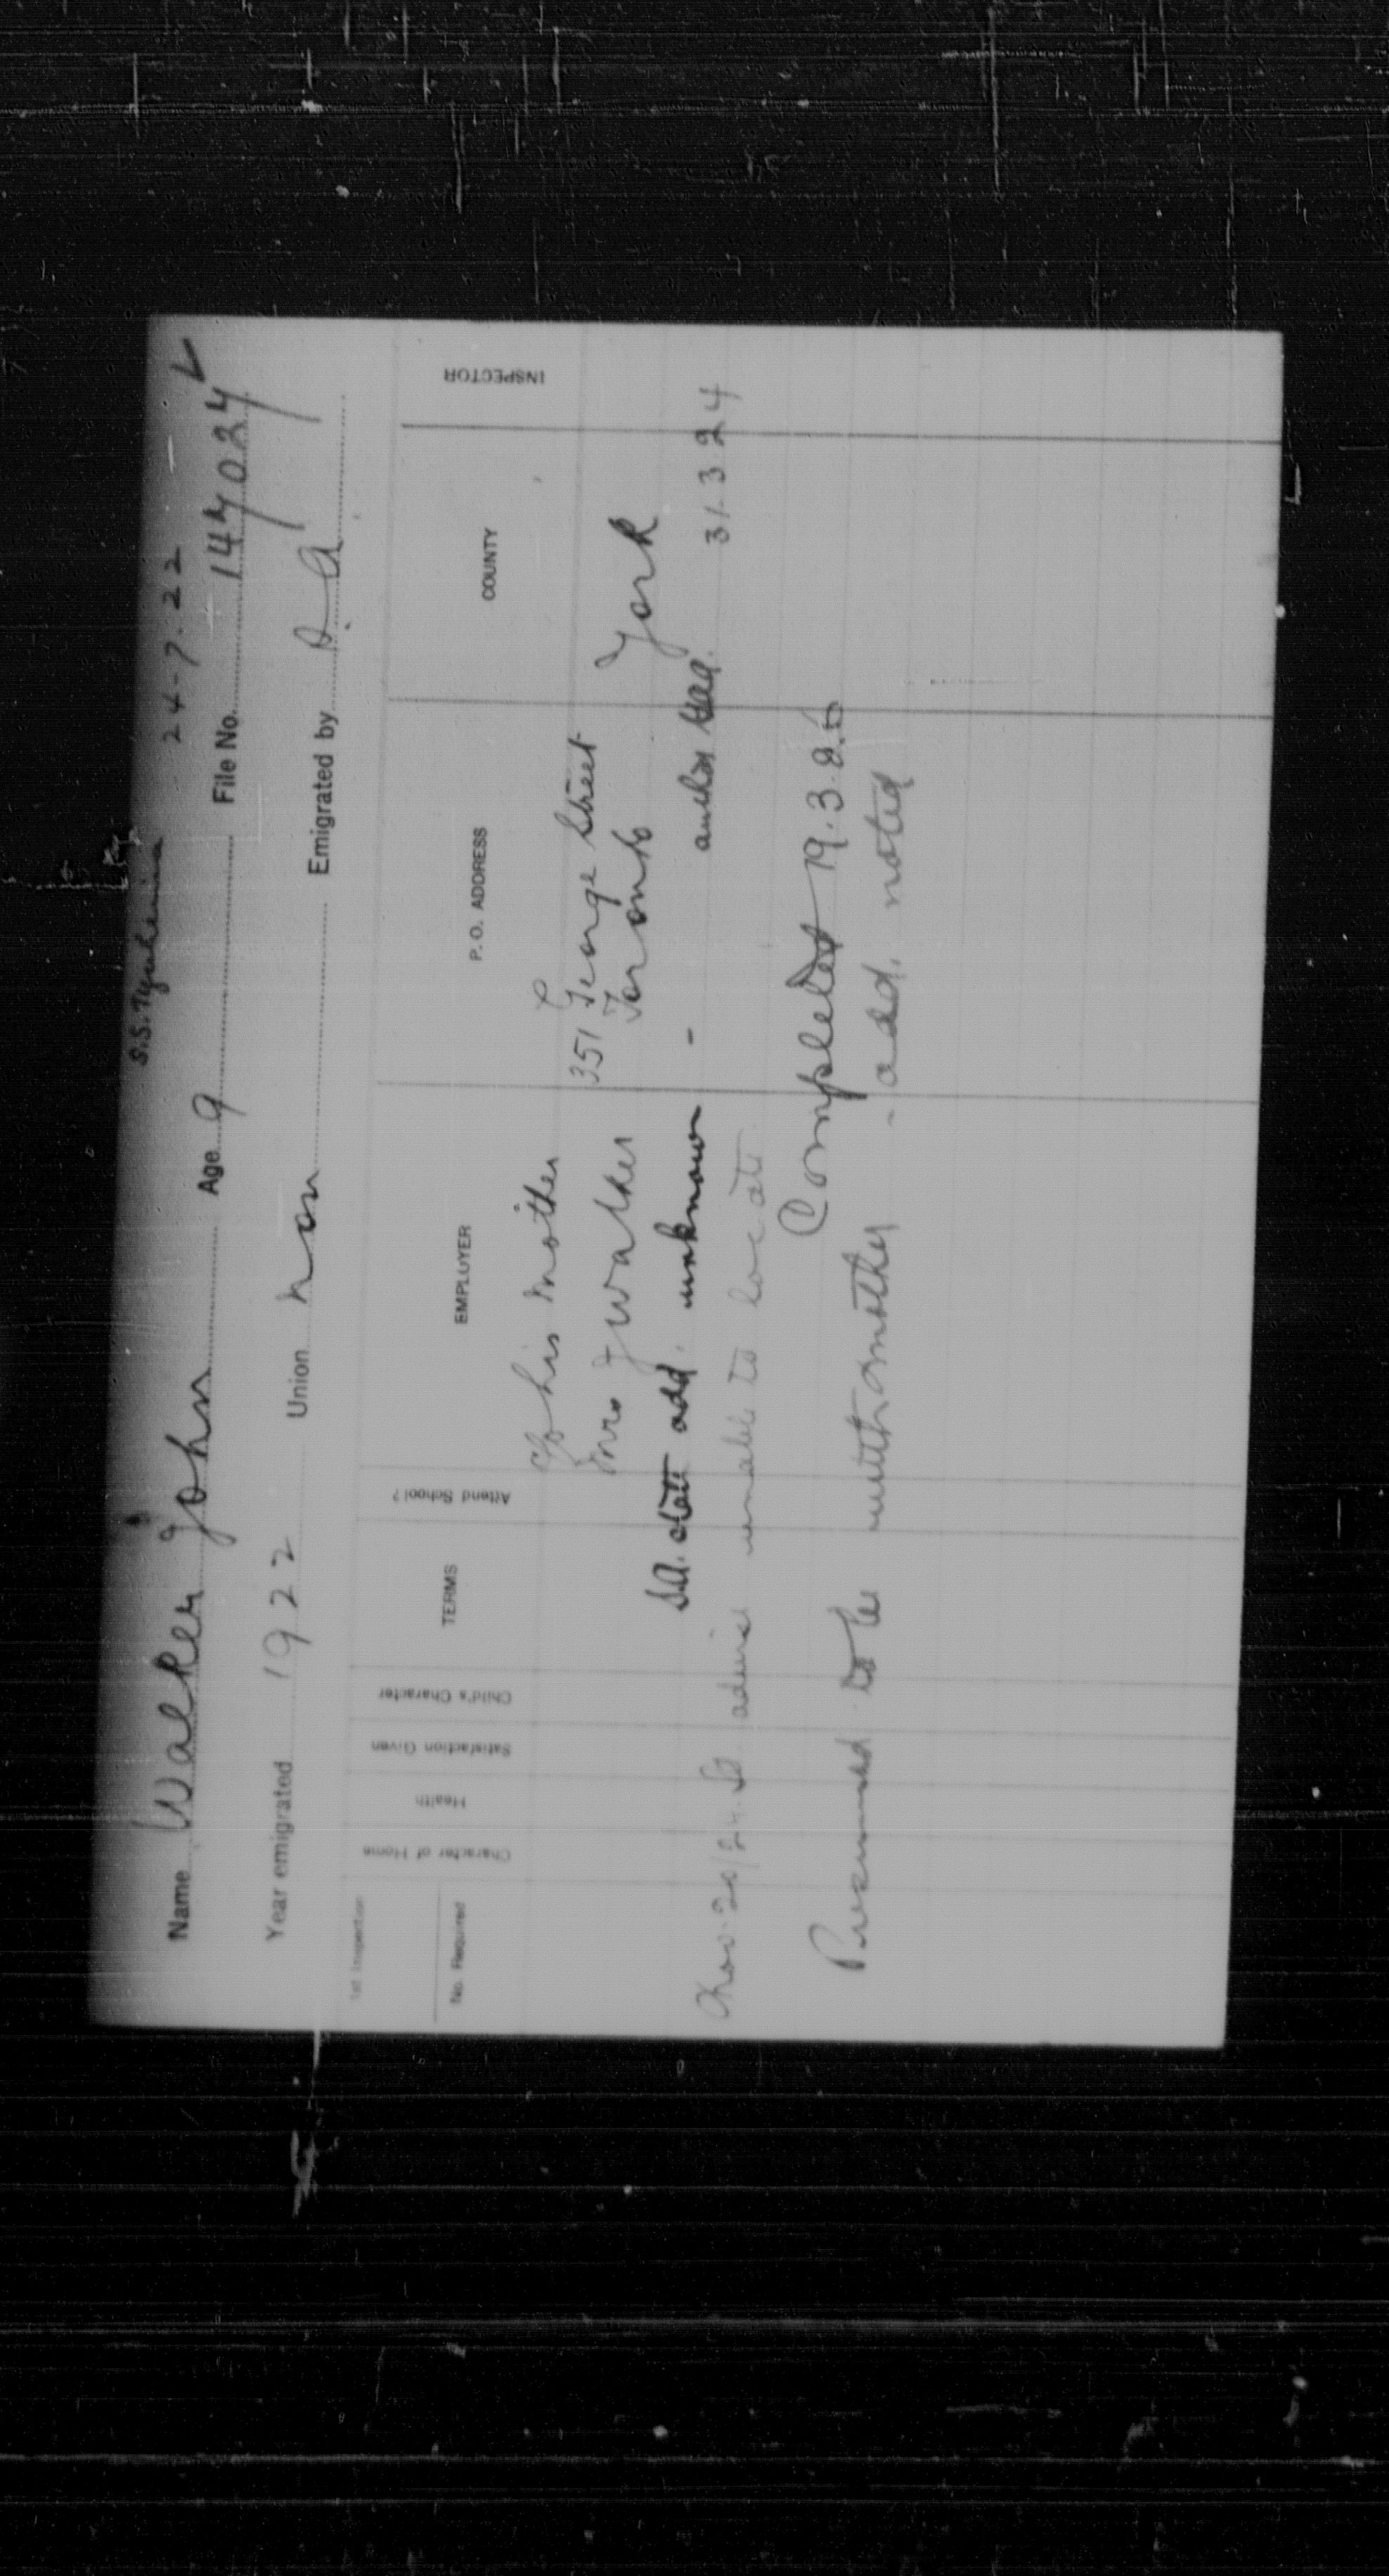 S.S. Tyrrhenia 24-7-22
Name Walker John Age 9 File No. 147024
Year emigrated 1922 Union non Emigrated by S A
1st Inspection
No. Required
Character of Home
Health
Satisfaction Given
Child's Character
TERMS
Attend School?
EMPLOYER
P. O. ADDRESS
COUNTY
INSPECTOR
c/o his mother
351 George Street
Mrs J Walker Toronto York
S.A. state add. unknown - 31.3.24
Nov. 20/24. S.A. advise unable to locate
Completed 19.3.25
Presumed to be with mother - add. noted